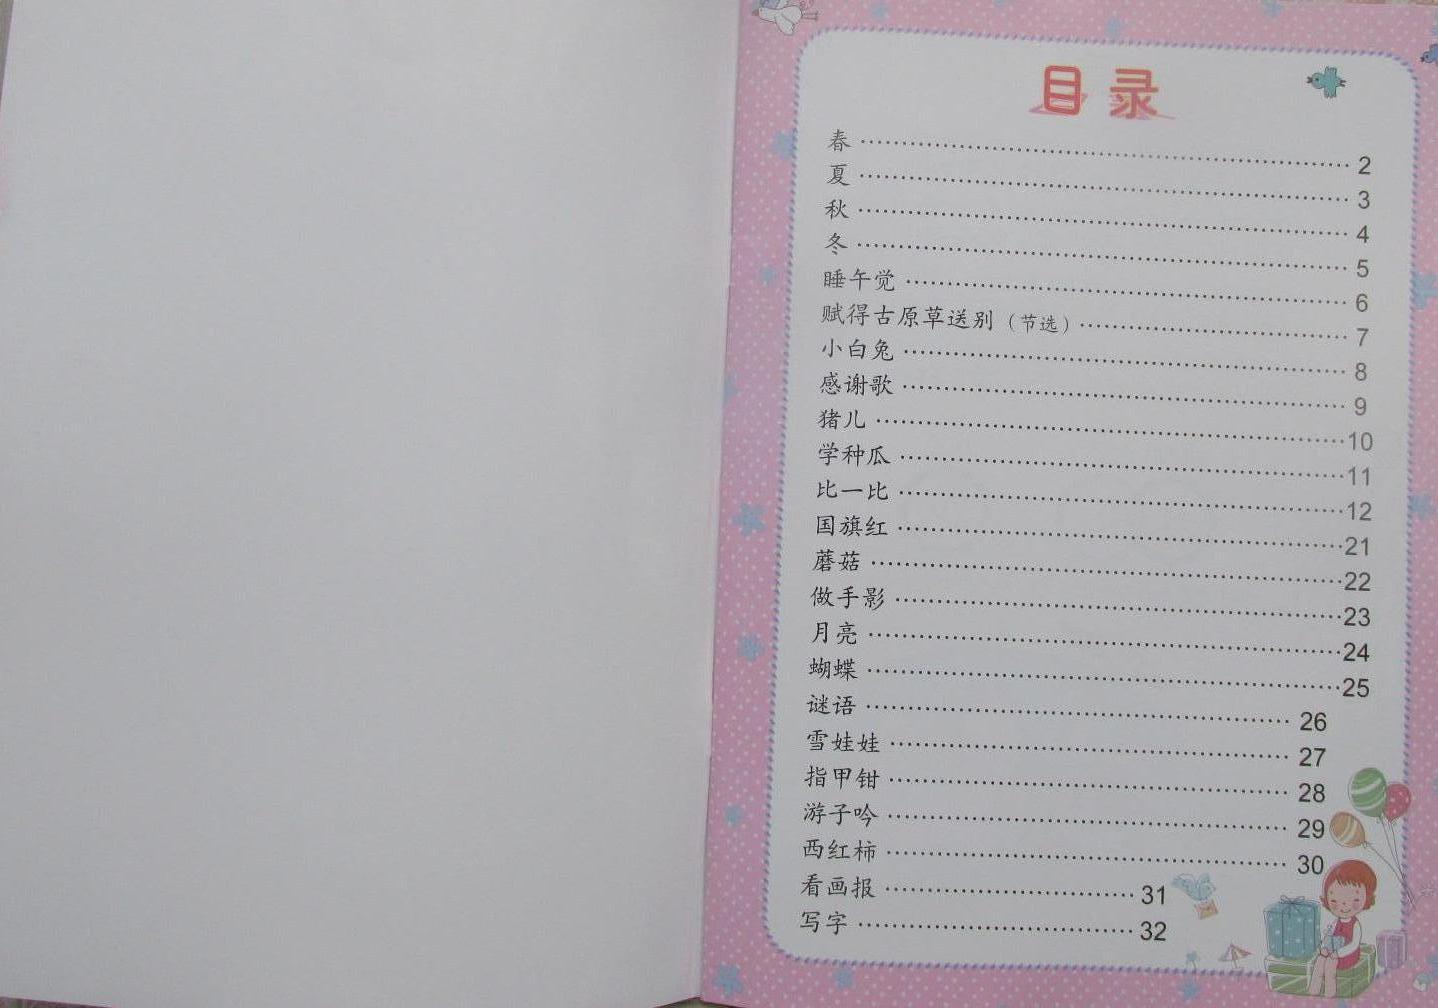 目录
春 2
夏 3
秋 4
冬 5
睡午觉 6
赋得古原草送别（节选） 7
小白兔 8
感谢歌 9
猪儿 10
学种瓜 11
比一比 12
国旗红 21
蘑菇 22
做手影 23
月亮 24
蝴蝶 25
谜语 26
雪娃娃 27
指甲钳 28
游子吟 29
西红柿 30
看画报 31
写字 32